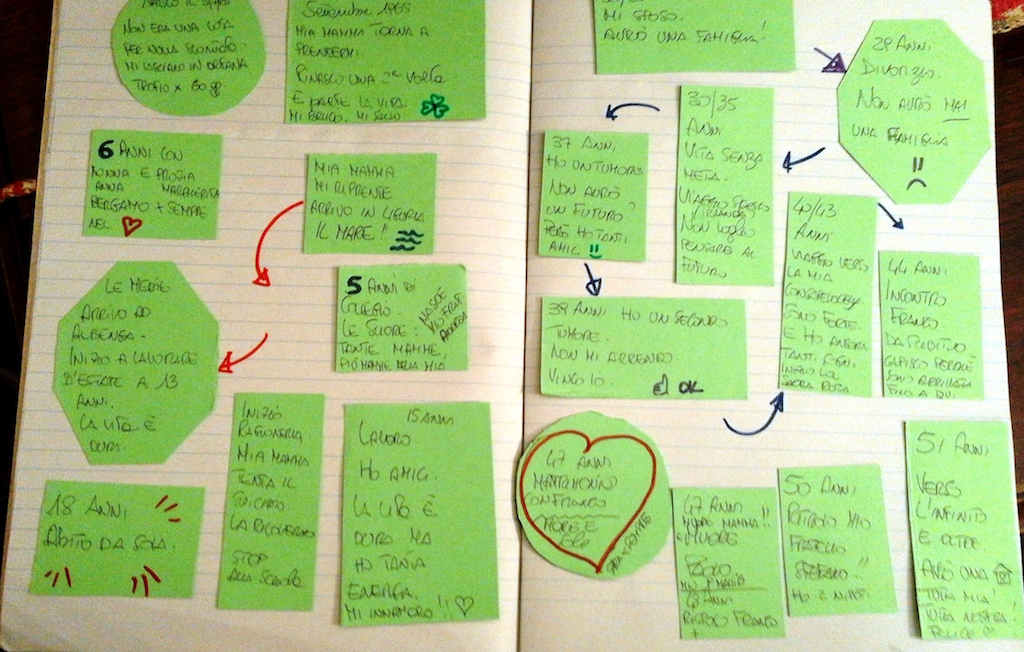 NON ERA UNA COSA
PER NULLA SCONTATA.
MI LASCIANO IN
Settembre 1965
MIA MAMMA TORNA A
PRENDERMI.
RINASCO UNA 2ª VOLTA.
E PARTE LA VITA.
6 ANNI CON
NONNA E
ANNA MARGHERITA
BERGAMO + SEMPRE
NEL
MIA MAMMA
MI RIPRENDE
ARRIVO IN LIGURIA
IL MARE!!
5 ANNI DI
COLLEGIO
LE SUORE:
TANTE MAMME,
PIÙ MAMME DELLA MIA
NASCE
ANDREA
LE MEDIE
ARRIVO AD
ALBENGA.
INIZIO A LAVORARE
D'ESTATE A 13
ANNI.
LA VITA È
DURA.
INIZIO
RAGIONERIA.
MIA MAMMA
TENTA IL
SUICIDIO
LA RICOVERANO
STOP
ALLA SCUOLA
15 ANNI
LAVORO
HO AMICI.
LA VITA È
DURA MA
HO TANTA
ENERGIA.
MI INNAMORO!!
18 ANNI
ABITO DA SOLA.
MI SPOSO.
AVRÒ UNA FAMIGLIA!
29 ANNI
DIVORZIO.
NON AVRÒ MAI
UNA FAMIGLIA
!!
30/35
ANNI
VITA SENZA
META.
VIAGGIO SPESSO
(IRLANDA)
NON VOGLIO
PENSARE AL
FUTURO
37 ANNI
HO UN TUMORE
NON AVRÒ
UN FUTURO?
PERÒ HO TANTI
AMICI
39 ANNI HO UN SECONDO
TUMORE.
NON MI ARRENDO.
VINCO IO.
OK
40/43
ANNI
VIAGGIO VERSO
LA MIA
CONSAPEVOLEZZA
SONO FORTE.
E HO ANCORA
TANTI SOGNI.
44 ANNI
INCONTRO
FRANCO
DA SUBITO
CAPISCO PERCHÉ
SONO ARRIVATA
FINO A QUI.
47 ANNI
MATRIMONIO
CON FRANCO
47 ANNI
MUORE MAMMA!!
E MUORE
PAOLO
MIO 1° MARITO
ANNI
FRANCO
+
50 ANNI
RITROVO MIO
FRATELLO
STEFANO!!
HO 2 NIPOTI
51 ANNI
VERSO
L'INFINITO
E OLTRE.
AVRÒ UNA
TUTTA MIA!
TUTTA NOSTRA!
FELICE